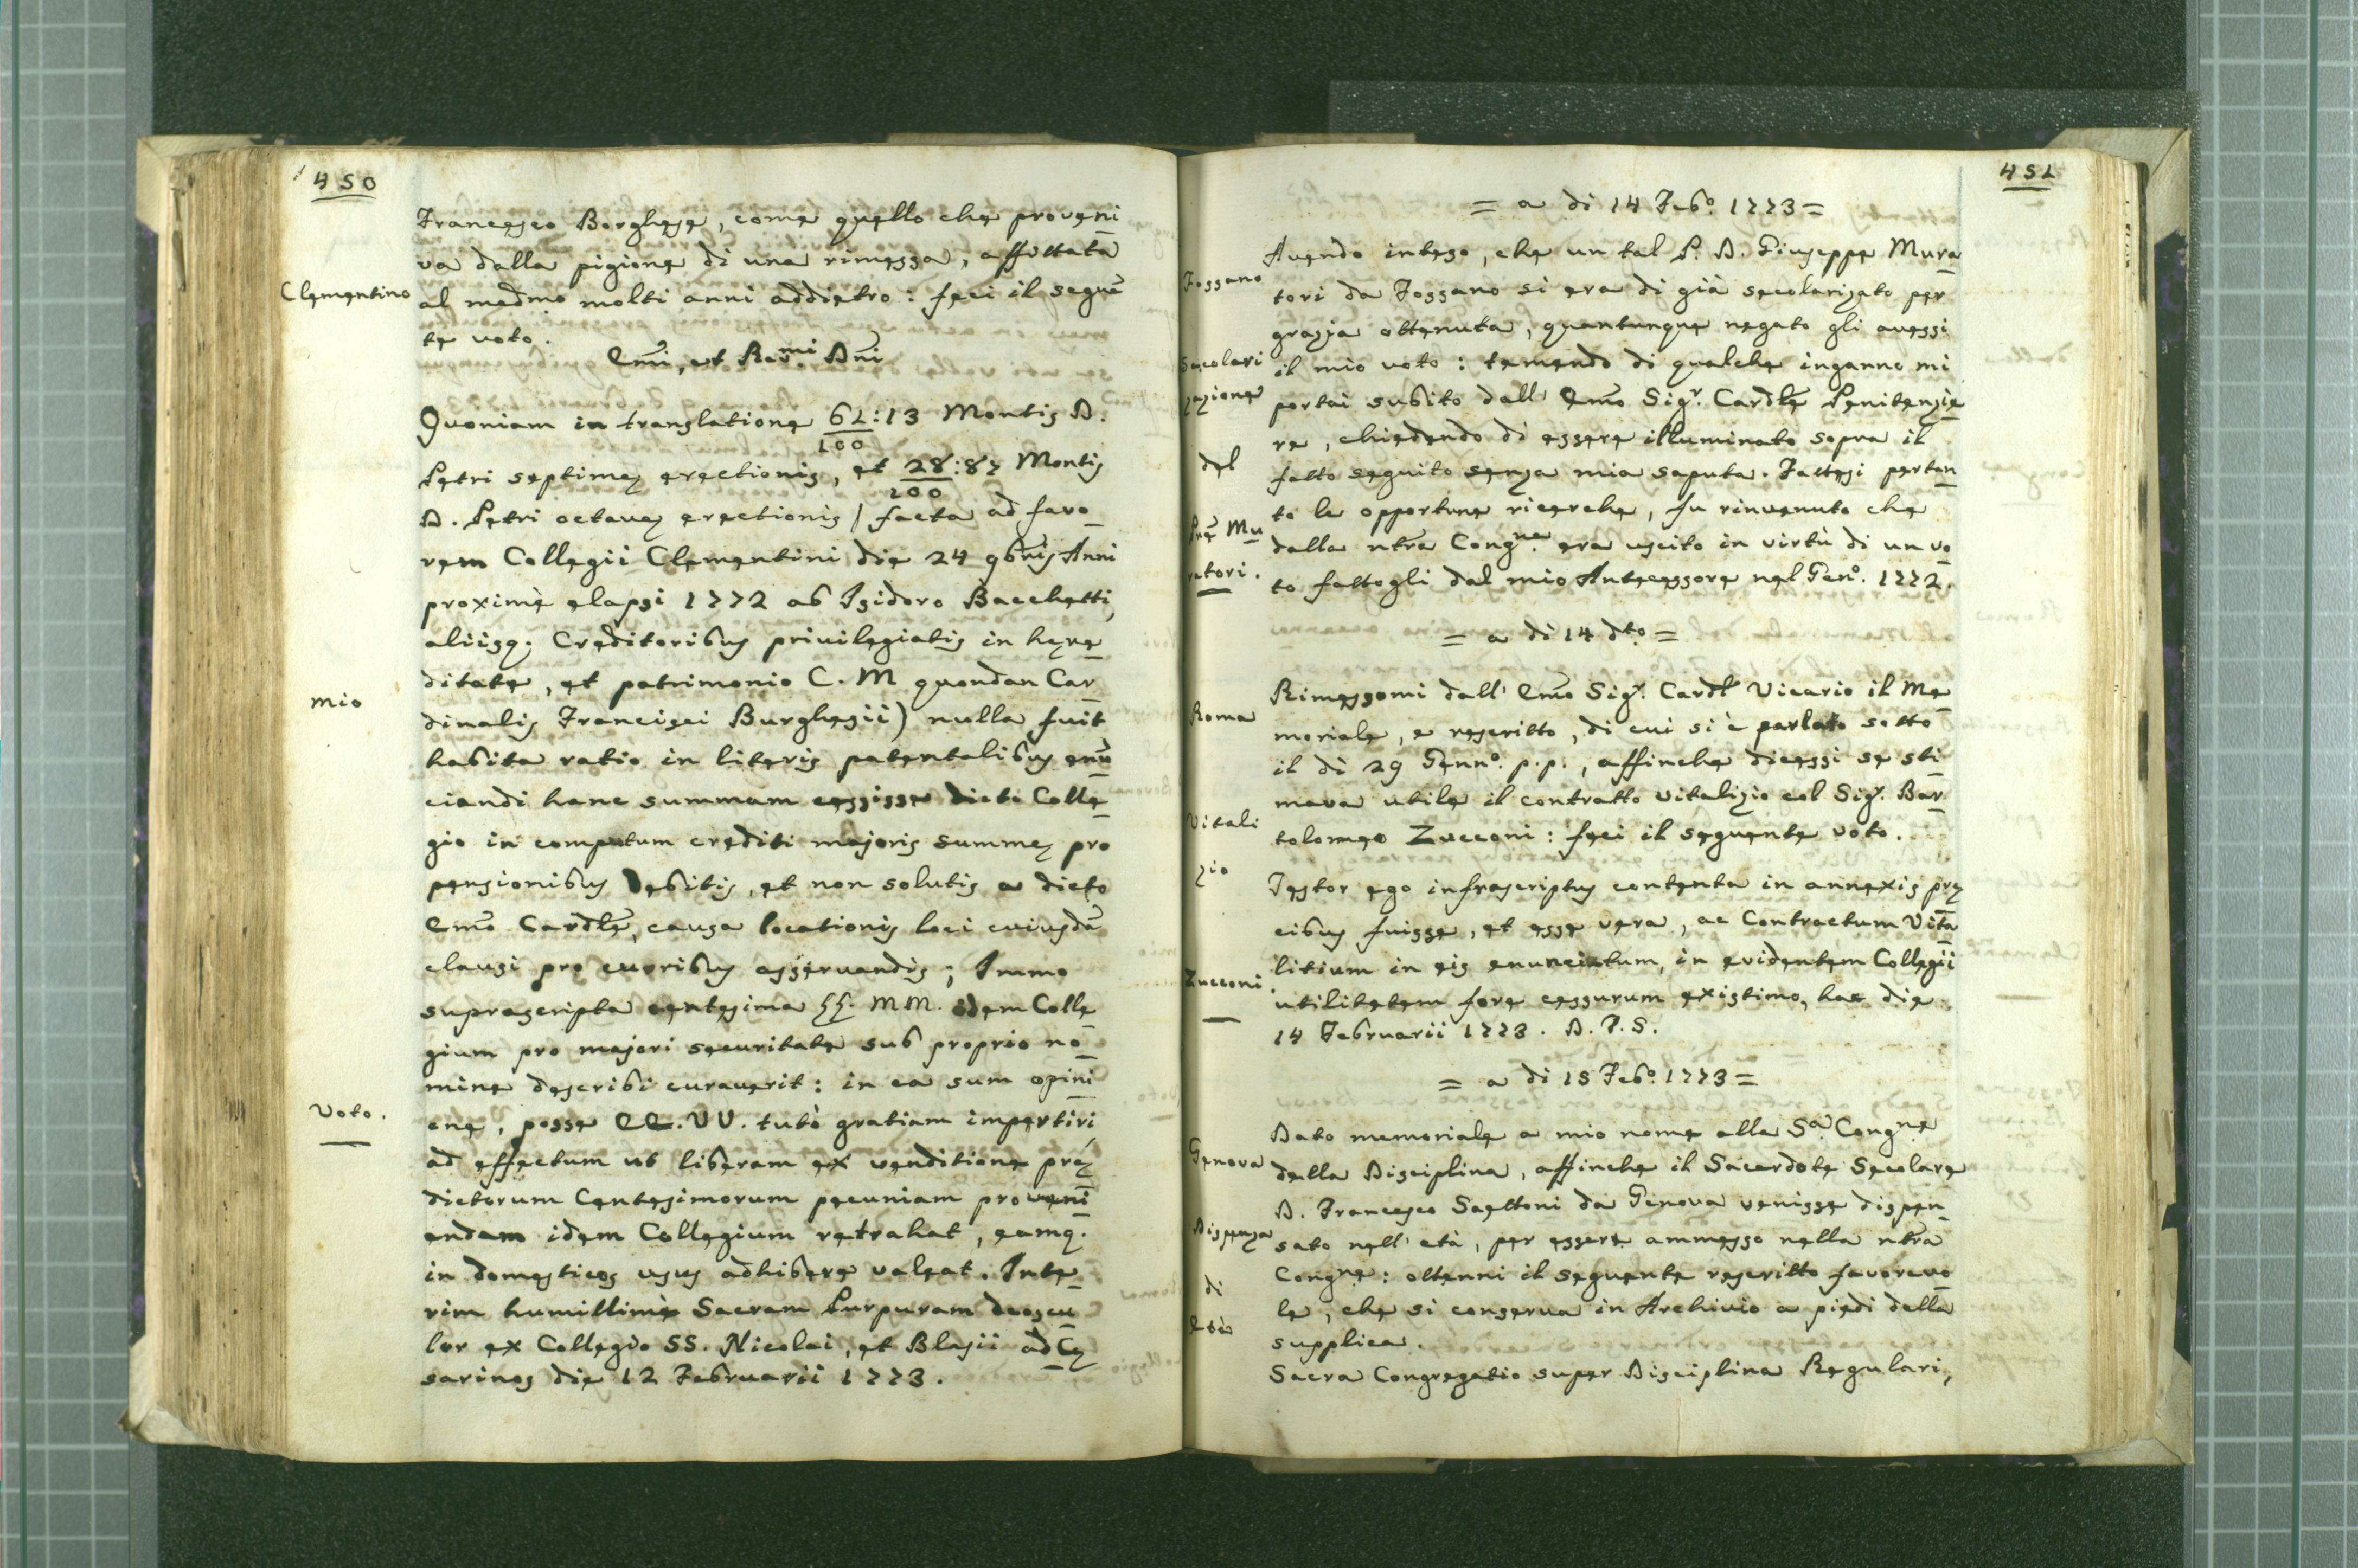 450
Francesco Borghese, come quello che proveni
va dalla pigione di una rimessa, affittata
Clementino
al medmo molti anni addietro: feci il seguẽ
te voto.
Emi, et Rev.mi Dñi
Quoniam in translatione 61:13 Montis D.
100
Petri septimę erectionis, et 28:87 Montis
100
D. Petri octavę erectionis / facta ad favo
rem Collegii Clementini die 24 9bris Anni
proximè elapsi 1772 ab Isidoro Bacchetti,
aliisq; Creditoribus privilegiatis in hęre
ditate, et patrimonio C. M quondan Car
mio
dinalis Francisci Burghesii) nulla fuit
habita ratio in literis patentalibus enũ
ciandi hanc summam cessisse dicto Colle
gio in computum crediti majoris summę pro
pensionibus debitis, et non solutis a dicto
Emo Cardle, causa locationis loci cuiusdã
clausi pro curribus asservandis; Immo
suprascripta centesima SS. MM. idem Colle
gium pro majori securitate sub proprio no
mine describi curaverit: in ea sum opini
Voto.
one, posse EE. VV. tutò gratiam impertiri,
ad effectum ut liberam ex venditione prę
dictorum Centesimorum pecuniam proveni
endam idem Collegium retrahat, eamq.
in domesticos usus adhibere valeat. Inte
rim humillimè Sacram Purpuram deoscu
lor ex Collegio SS. Nicolai, et Blasii ad Cę
sarinos die 12 Februarii 1773.
451
= a di 14 Febo. 1773 =
Avendo inteso, che un tal P. D. Giuseppe Mura
Fossano
tori da Fossano si era di già secolarizato per
grazia ottenuta, quantunque negato gli avessi
Secolari
il mio voto: temendo di qualche inganno mi
zazione
portai subito dall' Emo Sigr. Cardle Penitenzie
re, chiedendo di essere illuminato sopra il
del
fatto seguito senza mia saputa. Fattesi pertan
to le opportune ricerche, fu rinvenuto che
Pre Mu
dalla ntra Congne era uscito in virtù di un vo
ratori.
to fattogli dal mio Antecessore nel Geno. 1772.
= a di 14 dto. =
Rimessomi dall' Emo Sigr. Cardl Vicario il Me
Roma
moriale, e rescritto, di cui si è parlato sotto
il dì 29 Genno. p.p., affinche dicessi se sti
mava utile il contratto vitalizio col Sigr. Bar
Vitali
tolomeo Zucconi: feci il seguente voto.
zio
Testor ego infrascriptus contenta in annexis prę
cibus fuisse, et esse vera, ac Contractum Vita
Zucconi.
litium in eis enunciatum, in evidentem Collegii
utilitatem fore cessurum existimo, hac die
14 Februarii 1773. D. P. S.
= a di 15 Febo. 1773 =
Dato memoriale a mio nome alla Sa. Congne
Genova
della Disciplina, affinche il Sacerdote Secolare
D. Francesco Saettoni da Genova venisse dispen
Dispensa
sato nell' età, per essere ammesso nella ntra
Congne: ottenni il seguente rescritto favorevo
di
le, che si conserva in Archivio a piedi della
età
supplica.
Sacra Congregatio super Disciplina Regulari,